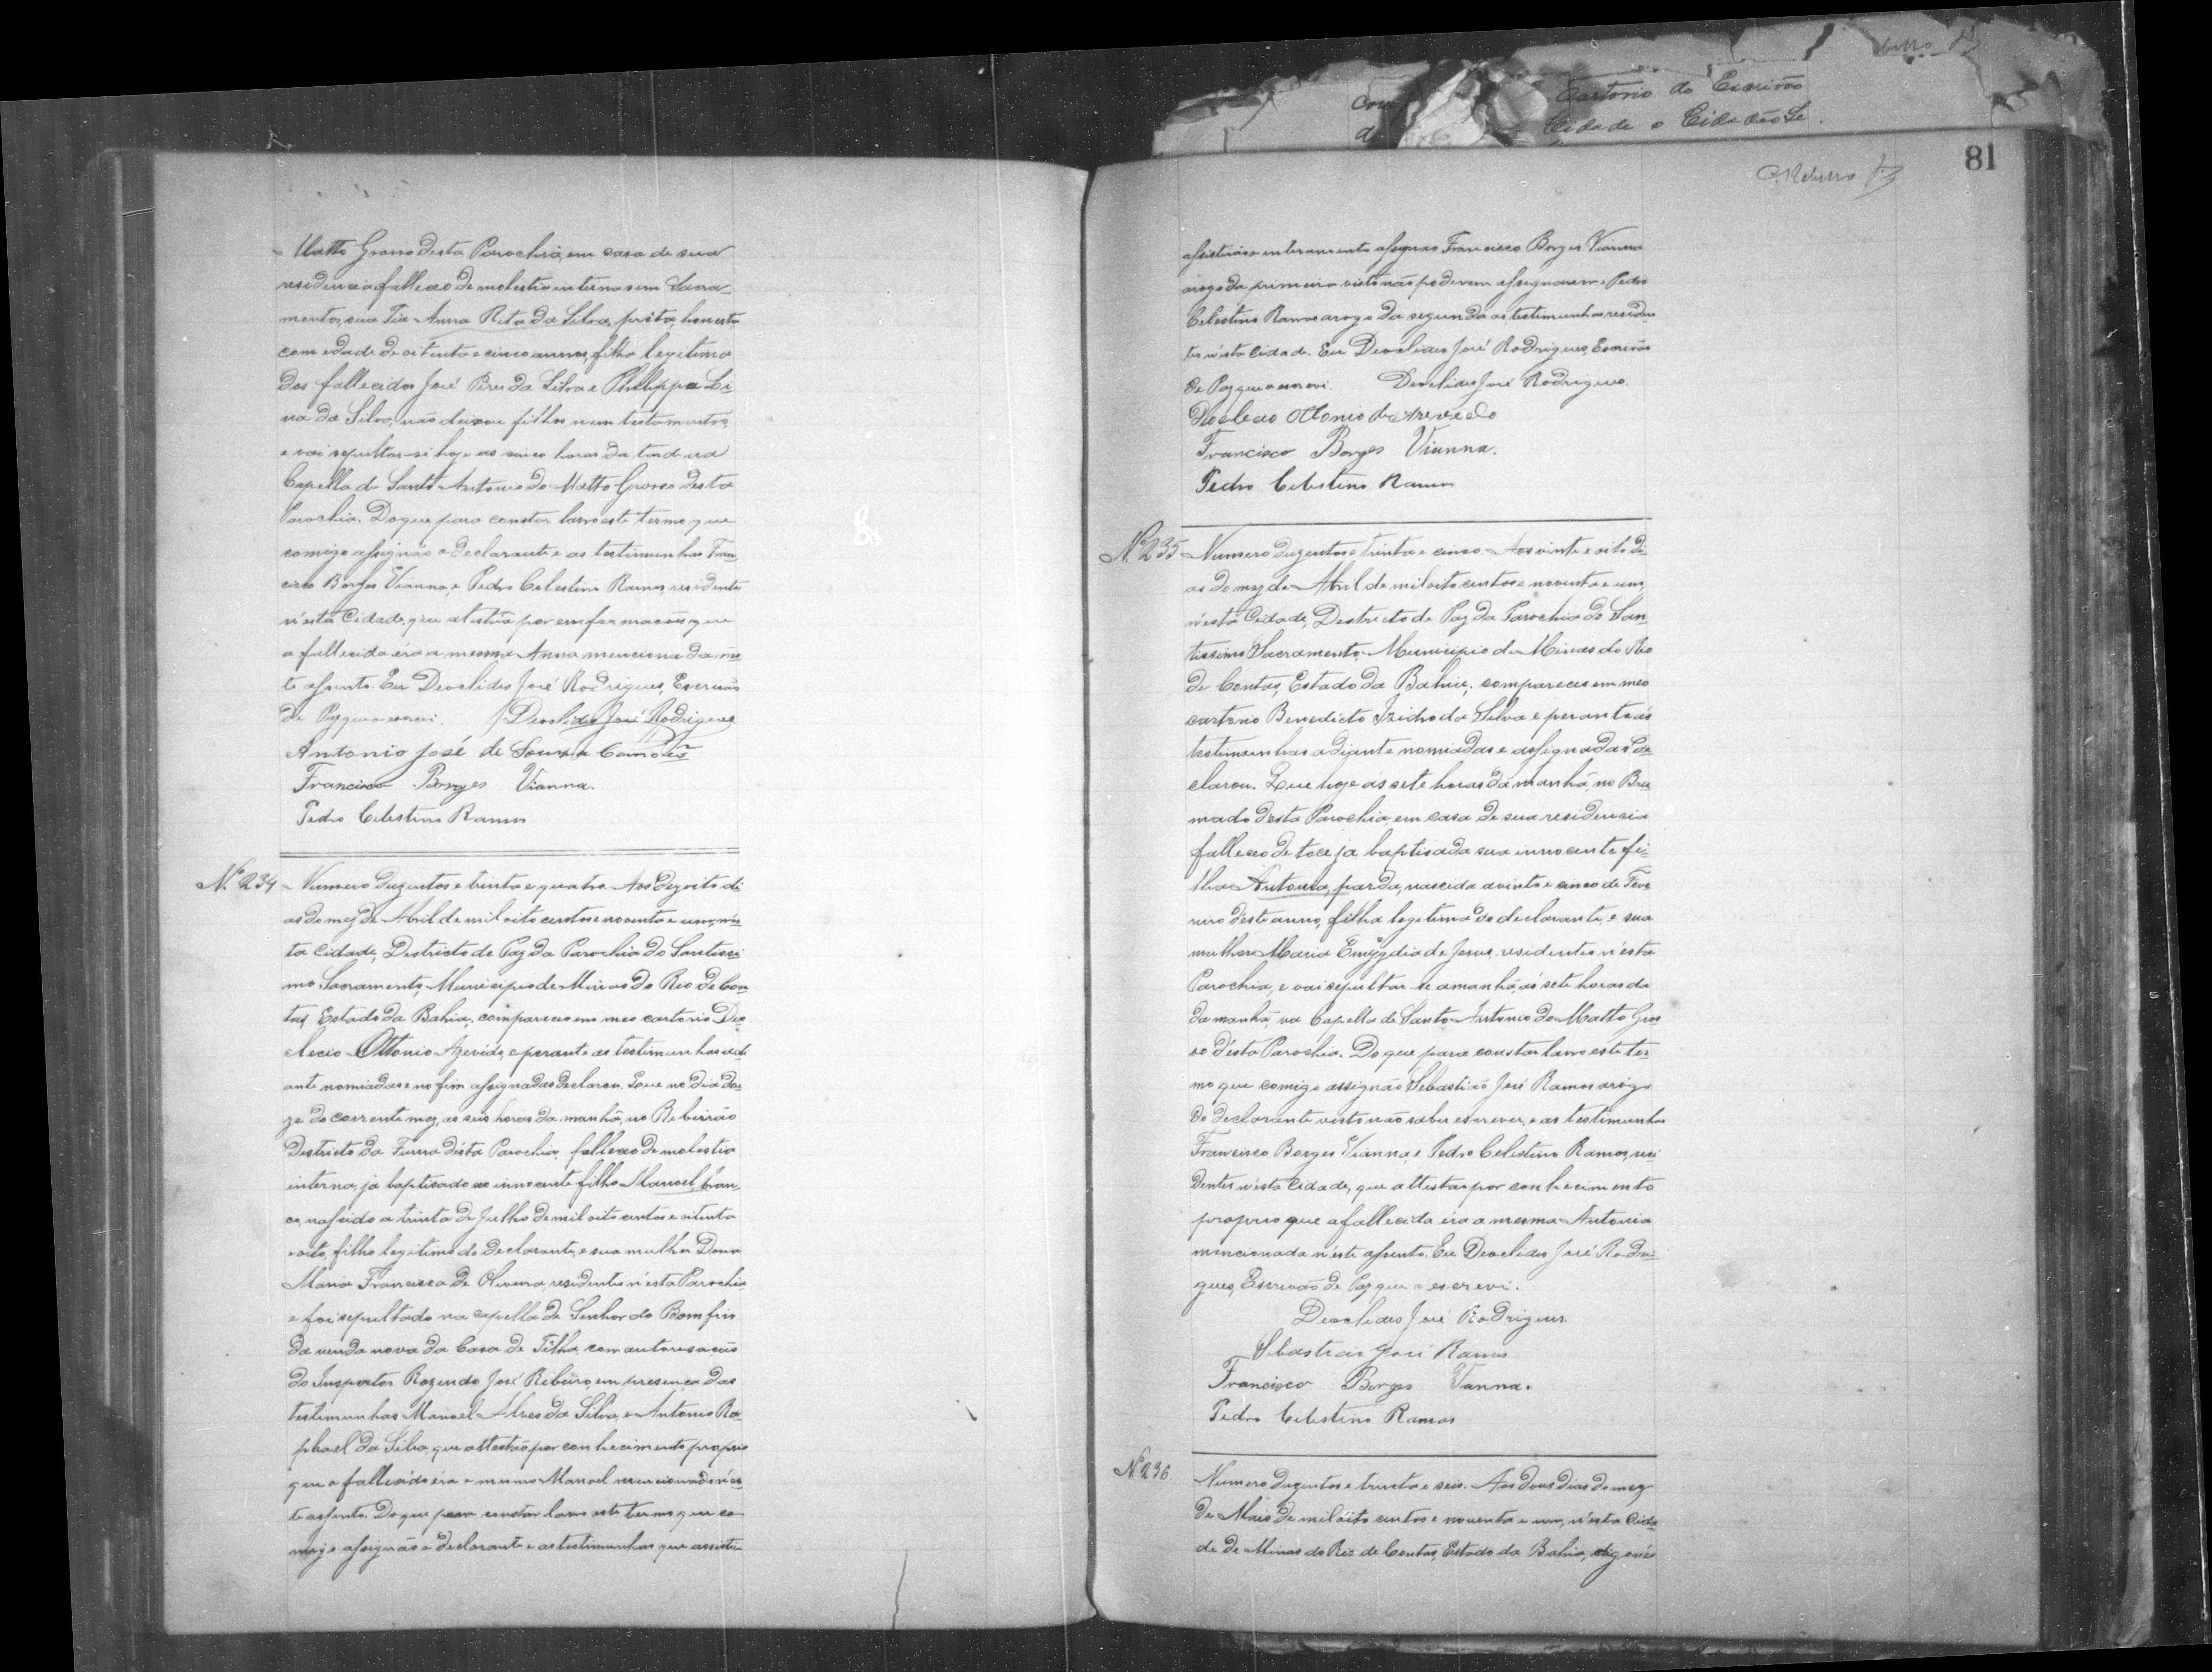 Matto Grosso desta Parochia, em casa de sua
residencia falleceo de molestia interna sem Sacra-
mentos, sua Tia Anna Rita da Silva, preta, honesta
com edade de oitenta e cinco annos, filha legitima
dos fallecidos José Pires da Silva e Phelippa Li-
na da Silva, não deixou filhos nem testamento,
e vai sepultar-se hoje as cinco horas da tarde na
Capella de Santo Antonio do Matto Grosso desta
Parochia. Do que para constar lavro este termo que
comigo assignão o declarante e as testimunhas Fran-
cisco Borges Vianna, e Pedro Celestino Ramos, residentes
n'esta Cidade, que atestão por emformacões que
a fallecida éra a mesma Anna mencionada nes-
te assento. Eu Deoclides José Rodrigues, Escrivão
de Paz que o escrevi. Deoclides José Rodrigues
Antonio José de Souza
Francisco Borges Vianna.
Pedro Celestino Ramos
Nº 234 Numero duzentos e trinta e quatro. Aos dezoito di-
as do mez de Abril de mil oito centos e noventa e um, n'es-
ta Cidade, Destricto de Paz da Parochia do Santissi-
mo Sacramento, Municipio de Minas do Rio de Con-
tas, Estado da Bahia, compareceo em meo cartorio Deo-
clecio Ottonio Azevedo, e perante as testimunhas adi-
ante nomiadas e no fim assignadas declarou. Que no dia do-
ze do corrente mez, as seis horas da manhã, no Ribeirão
Destricto da Furna desta Parochia, falleceo de molestia
interna, ja baptisado seo innocente filho Manoel, bran-
co, nascido a trinta de Julho de mil oito centos e oitenta
e oito, filho legitimo do declarante, e sua mulher Dona
Maria Francisca de Oliveira, residentes n'esta Parochia,
e foi sepultado na capella do Senhor do Bomfim
da venda nova da Casa de Telha, com autorisacão
do Inspector Rozendo José Ribeiro, em presença das
testimunhas Manoel Alves da Silva, e Antonio Ra-
phael da Silva, que attestão por conhecimento proprio
que o fallecido éra o mesmo Manoel mencionado n'es-
te assento. Do que para constar lavro este termo que co-
migo assignão o declarante e as testimunhas que assisti-
81
assistirão o enterramento assignão Francisco Borges Vianna
arogo da primeira visto não poderem assignarem e Pedro
Celestino Ramos arogo da segunda as testimunhas residen-
tes n'esta Cidade. Eu Deoclides José Rodrigues, Escrivão
de Paz que o escrevi. Deoclides José Rodrigues.
Deoclecio Ottonio de Azevedo
Francisco Borges Vianna.
Pedro Celestino Ramos
Nº 235 Numero duzentos e trinta e cinco. Aos vinte e oito di-
as do mez de Abril de mil oito centos e noventa e um,
n'esta Cidade, Destricto de Paz da Parochia do San-
tissimo Sacramento, Municipio de Minas do Rio
de Contas, Estado da Bahia, compareceo em meo
cartorio Benedicto Izidro da Silva e perante as
testimunhas adiante nomiadas e assignadas de-
clarou. Que hoje as sete horas da manhã, no Bru-
mado desta Parochia, em casa de sua residencia
falleceo de toce ja baptisada sua innocente fi-
lha Antonia, parda, nascida a vinte e cinco de Feve-
reiro d'este anno, filha legitima do declarante, e sua
mulher Maria Emygdia de Jesus, residentes n'esta
Parochia, e vai sepultar-se amanhã, ás sete horas da
da manhã, na Capella de Santo Antonio do Matto Gros-
so d'esta Parochia. Do que para constar lavro este ter-
mo que comigo assignão Sebastião José Ramos arôgo
do declarante visto não saber escrever, e as testimunhas
Francisco Borges Vianna, e Pedro Celestino Ramos, resi-
dentes n'esta Cidade, que attestão por conhecimento
proprio que a fallecida éra a mesma Antonia
mencionada n'este assento. Eu Deoclides José Rodri-
gues, Escrivão de Paz que o escrevi.
Deoclides José Rodrigues.
Sebastião José Ramos
Francisco Borges Vianna.
Pedro Celestino Ramos
Nº 236 Numero duzentos e trinta e seis. Aos dous dias do mez
de Maio de mil oito centos e noventa e um, n'esta Cida-
de de Minas do Rio de Contas, Estado da Bahia, digo n'es
Cartorio do Escrivão
Cidade o Cidadão